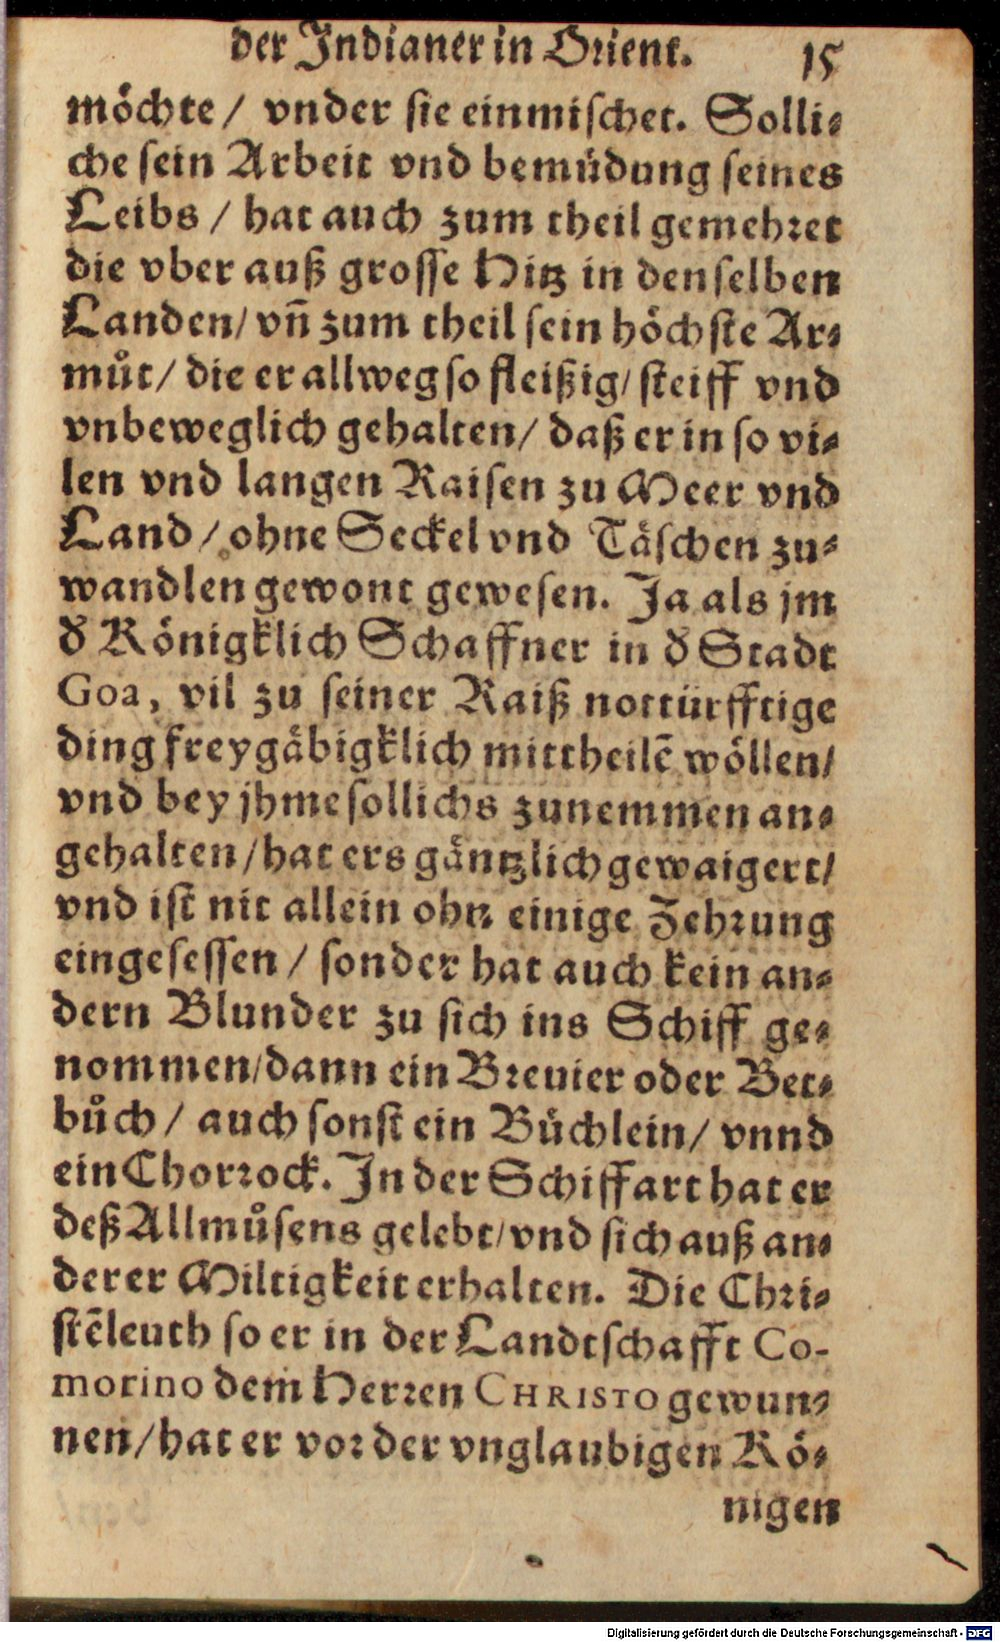 der Indianer in Orient. 15
möchte / vnder sie einmischet. Solli⸗
che sein Arbeit vnd bemüdung seines
Leibs / hat auch zum theil gemehret
die vber auß grosse Hitz in denselben
Landen / vñ zum theil sein höchste Ar⸗
můt / die er allweg so fleißig / steiff vnd
vnbeweglich gehalten / daß er in so vi⸗
len vnd langen Raisen zu Meer vnd
Land / ohne Seckel vnd Täschen zu⸗
wandlen gewont gewesen. Ja als jm
đ Königklich Schaffner in đ Stadt
Goa, vil zu seiner Raiß nottürfftige
ding freygäbigklich mittheilẽ wöllen /
vnd bey jhme sollichs zunemmen an⸗
gehalten / hat ers gäntzlich gewaigert /
vnd ist nit allein ohn einige Zehrung
eingesessen / sonder hat auch kein an⸗
dern Blunder zu sich ins Schiff ge⸗
nommen / dann ein Breuier oder Bet⸗
bůch / auch sonst ein Büchlein / vnnd
ein Chorrock. In der Schiffart hat er
deß Allmůsens gelebt / vnd sich auß an⸗
derer Miltigkeit erhalten. Die Chri⸗
stẽleuth so er in der Landtschafft Co-
morino dem Herren CHRISTO gewun⸗
nen / hat er vor der vnglaubigen Kö⸗
nigen
Digitalisierung gefördert durch die Deutsche Forschungsgemeinschaft - DFG